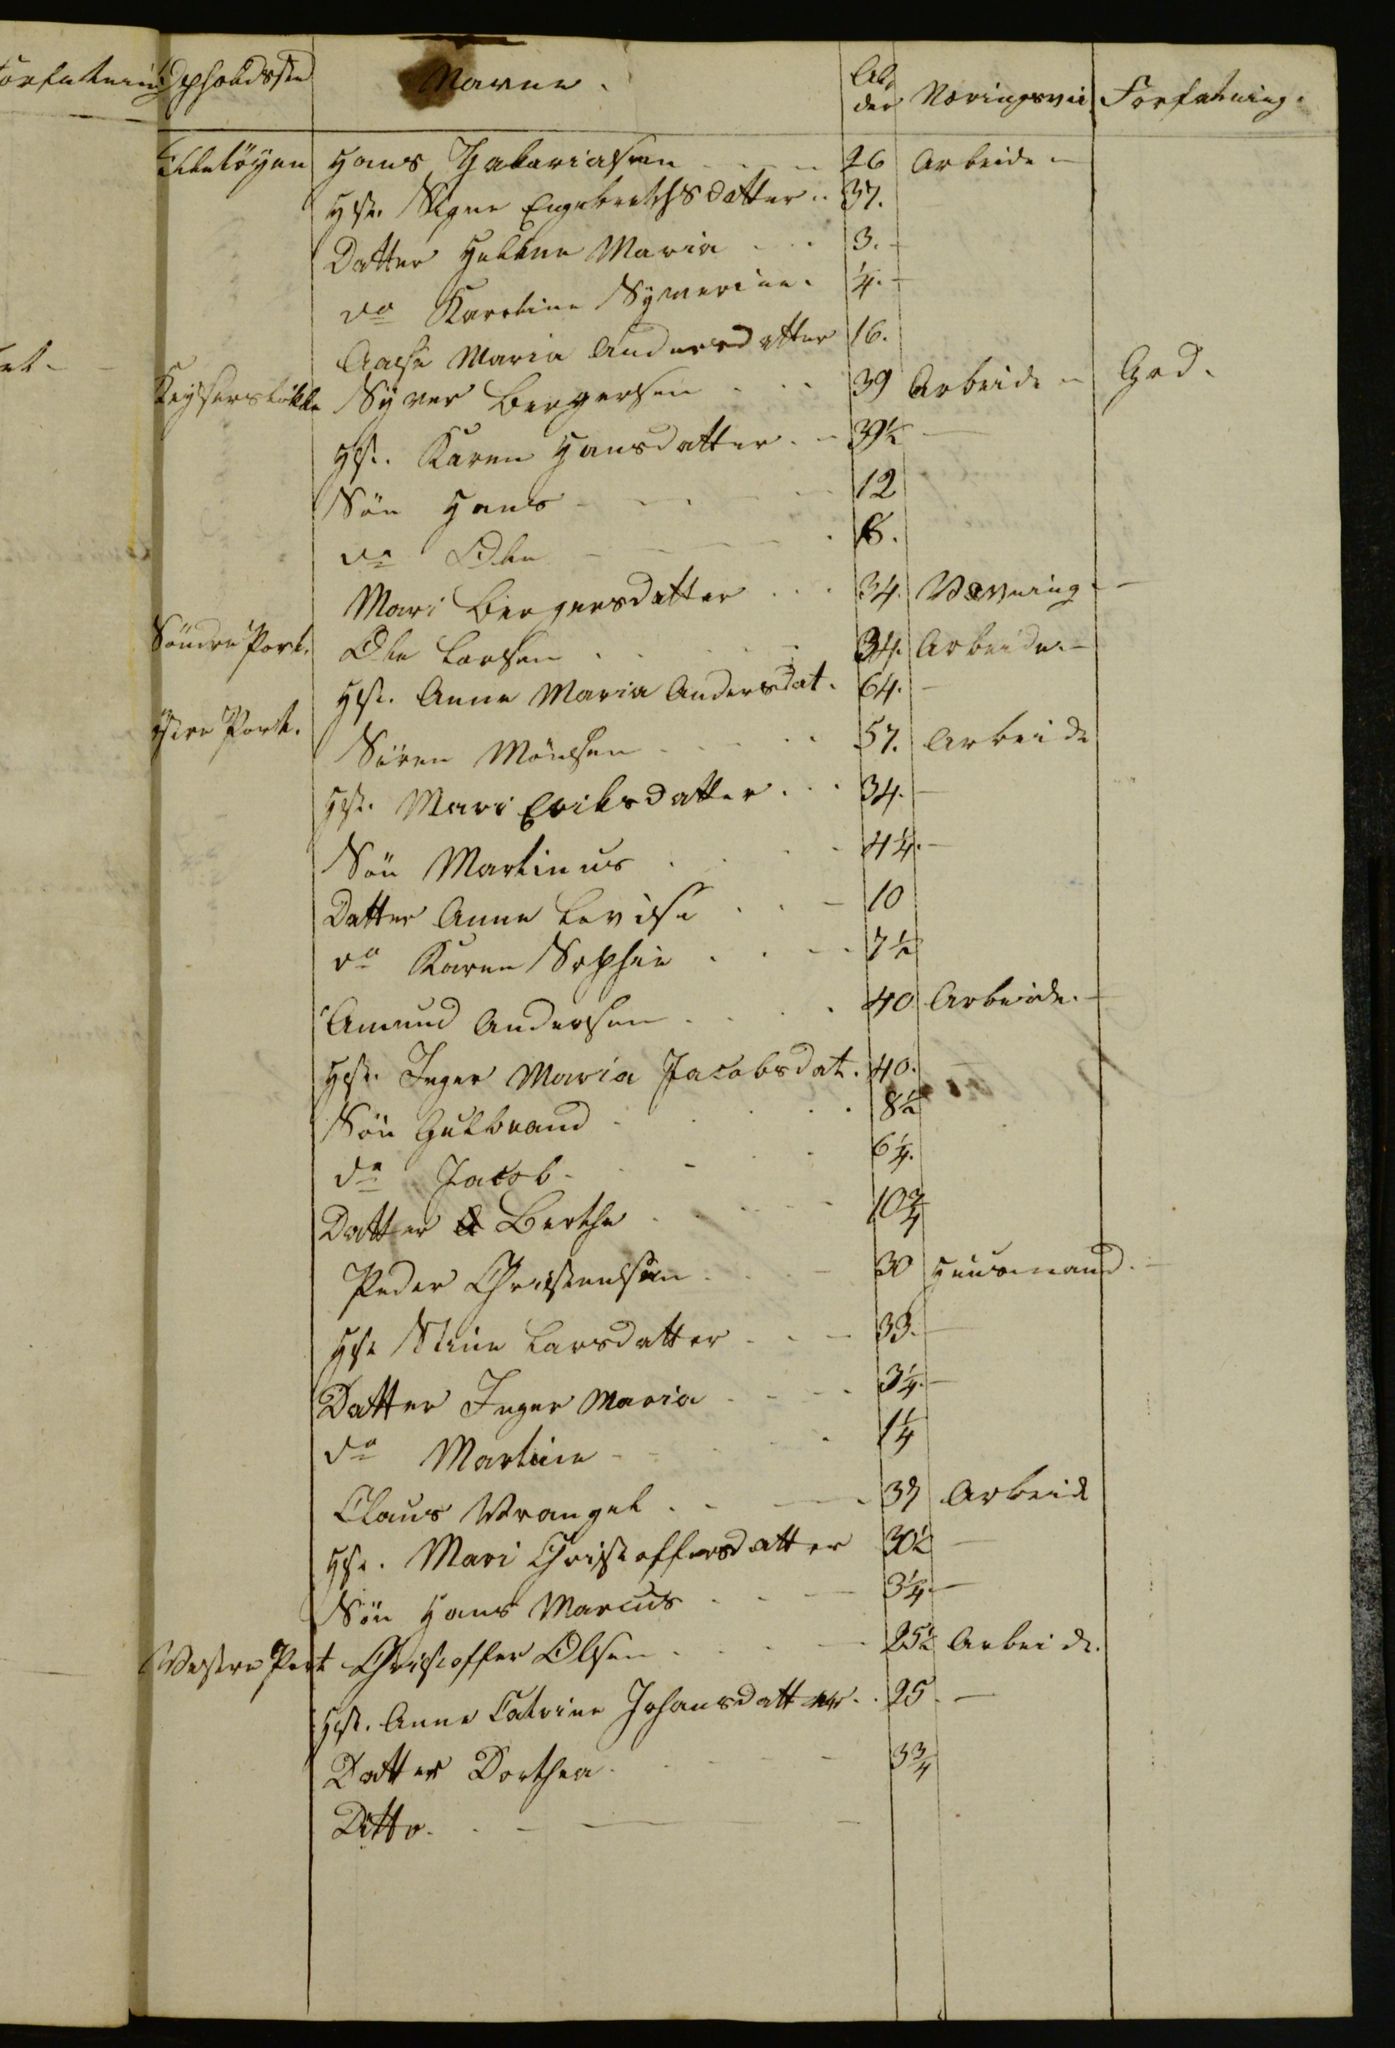 Opholdssted Navne. Al-
der Næringsvei Forfatning.
Hans Zakariasen 26 Arbeide
Hst. Signe Engebrethsdatter 37.
Datter Hellene Maria 3.
do Karoline Symerine. 1/4.
Aase Maria Andersdatter 16.
Keyserløkke Syver Bergersen 39 Arbeide God.
Hst. Karen Hansdatter 39 1/2
Søn Hans 12
do Ole 8.
Mari Bergersdatter 34 Vævning
Søndre Port. Ole Larsen 34. Arbeide.
Hst. Anne Maria Andersdat. 64.
Østre Port. Sören Mönsen 57. Arbeide
Hst. Mari Eriksdatter 34.
Søn Martinus 4 1/4.
Datter Anne Lovise 10
do Karen Sophie 7 1/2
Amund Andersen 40 Arbeide.
Hst. Inger Maria Jacobsdat. 40.
Søn Gulbrand 8 1/2
do Jacob 6 1/4.
Datter Berthe 10 3/4
Peder Christensen 30 Huusmand.
Hst. Stine Larsdatter 33.
Datter Inger Maria 3 1/4.
do Martine 1 1/4
Claus Wrangel 37 Arbeide
Hst. Mari Christoffersdatter 30 1/2
Søn Hans Marcus 3 1/4.
Vestre Port Christoffer Olsen 25 1/2 Arbeide.
Hst. Anne Catrine Johansdatter 25.
Datter Dorthea 3 3/4
Ditto.